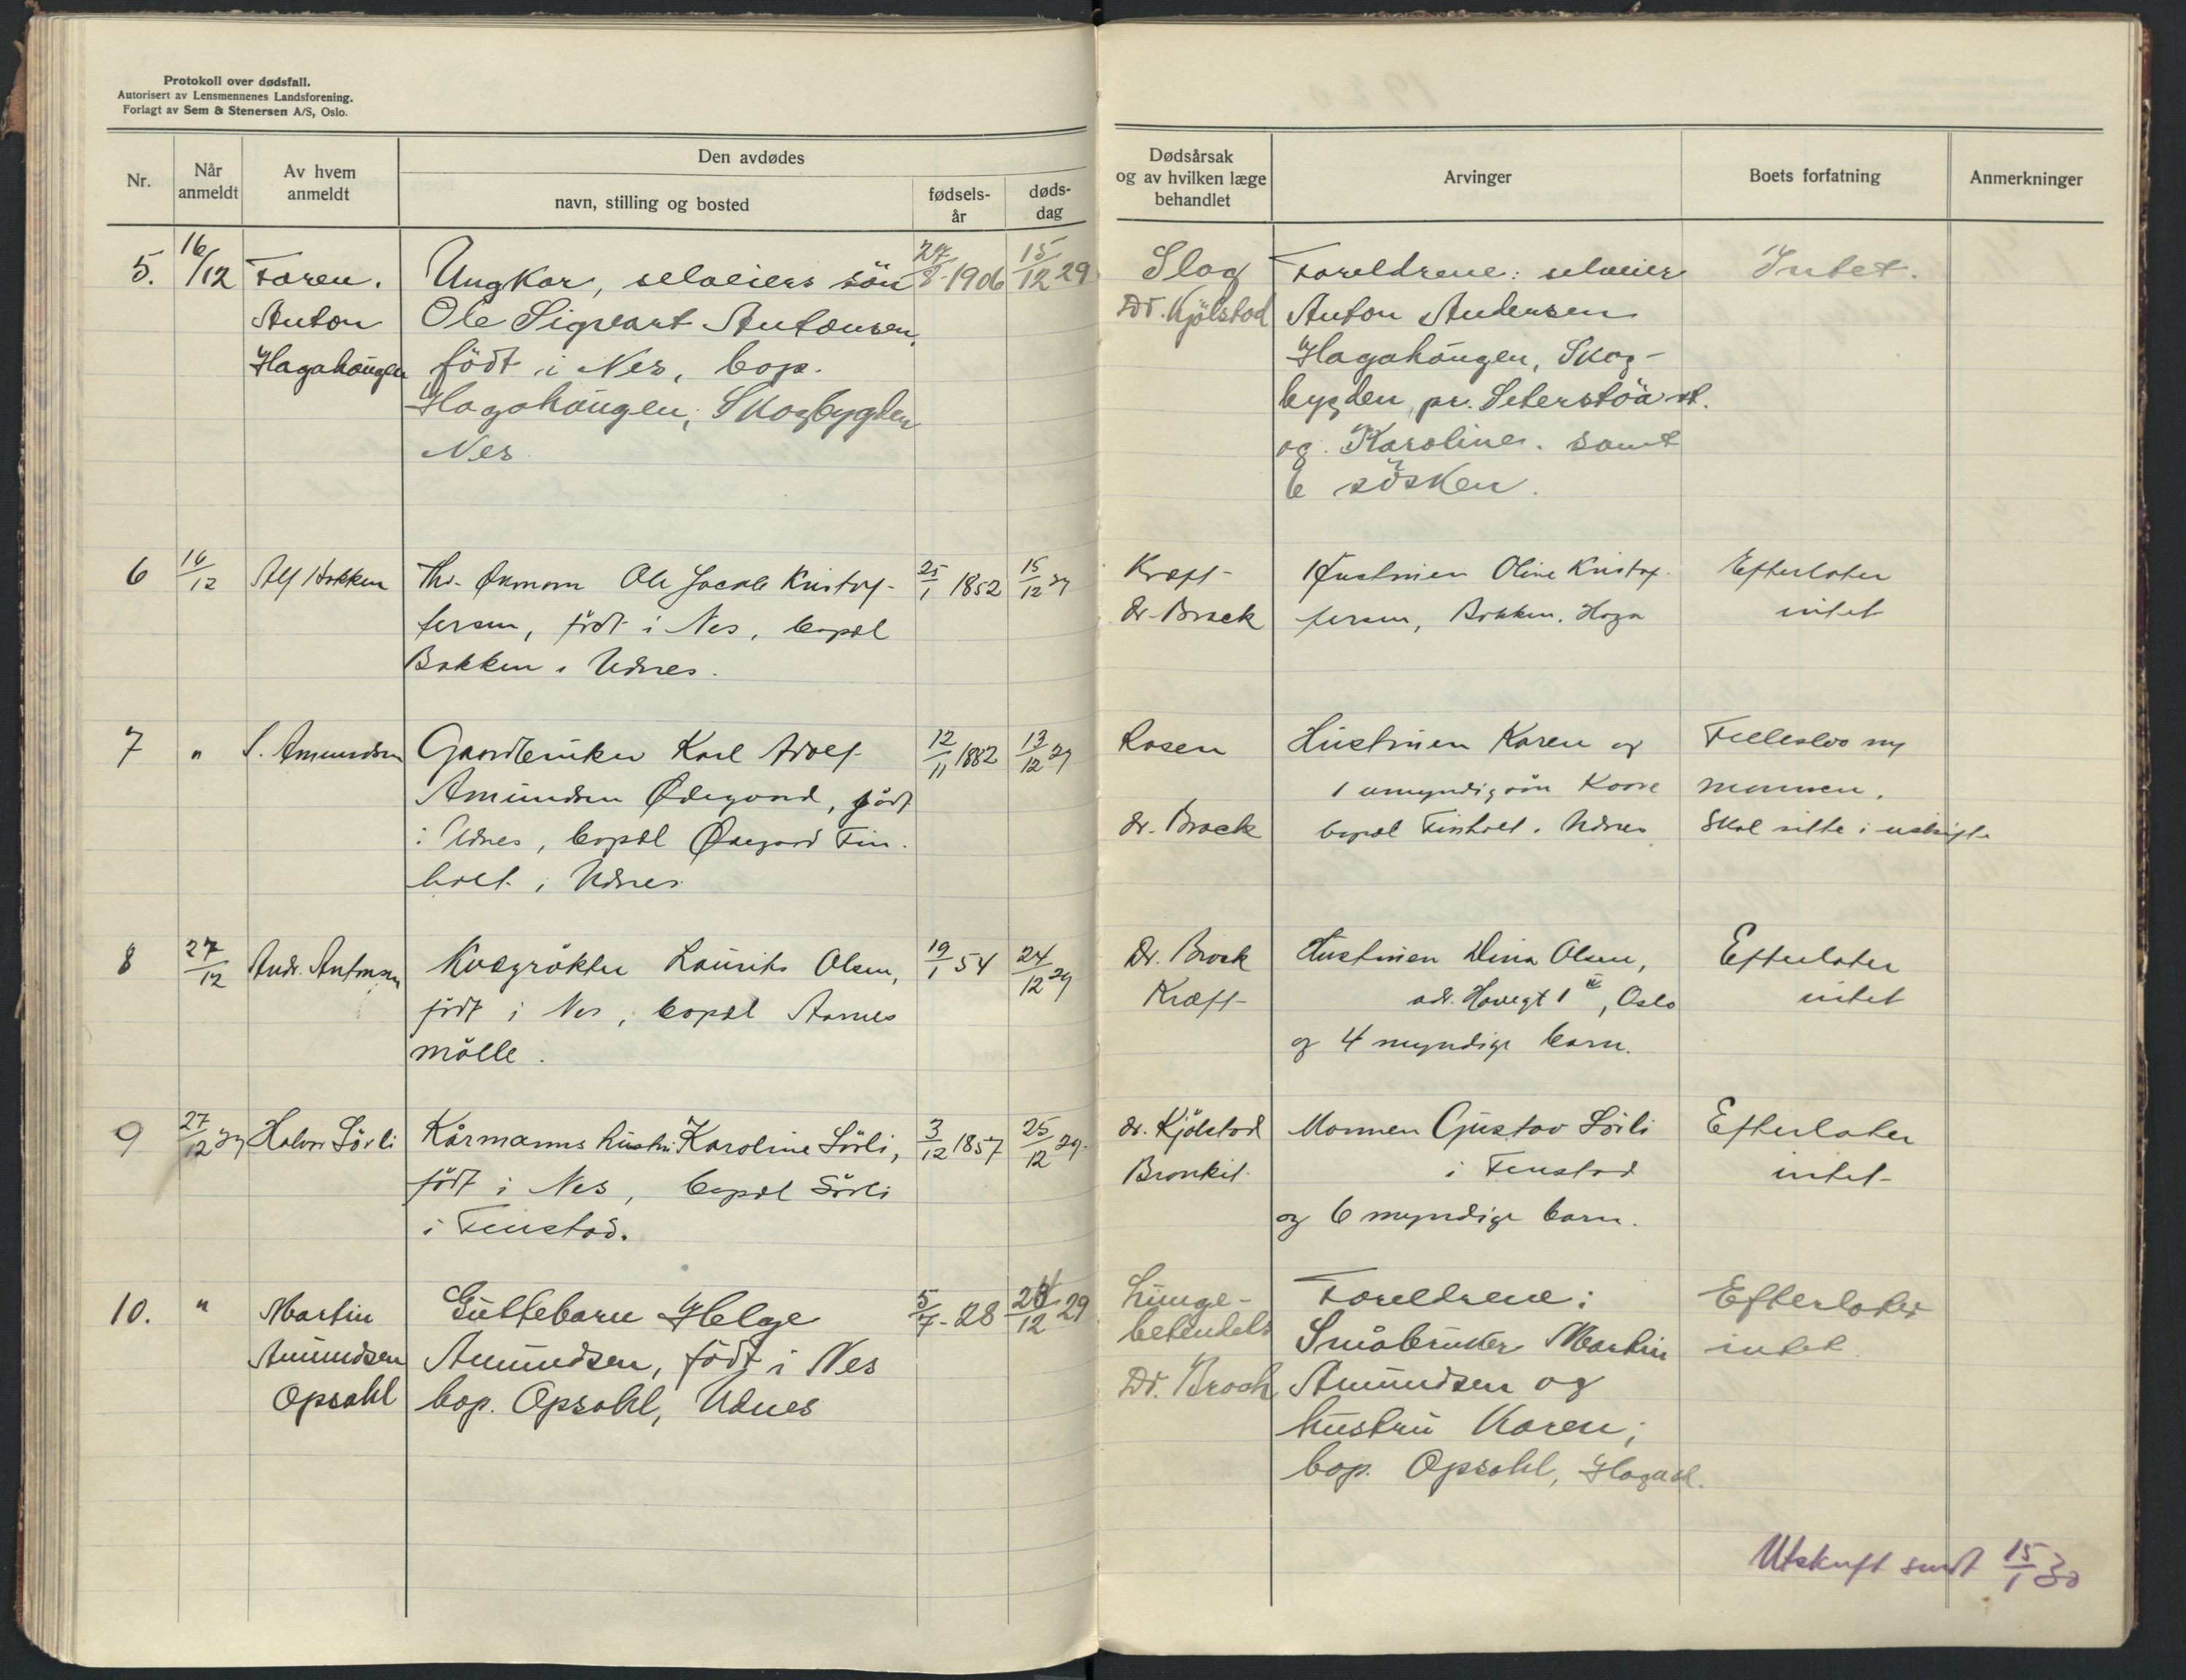 Protokoll over dødsfall.
Autorisert av Lensmennenes Landsforening.
Forlagt av Sem & Stenersen A/S, Oslo.
Nr.
Når anmeldt
Av hvem anmeldt
Den avdødes
navn, stilling og bosted
fødsels-år
døds-dag
Dødsårsak og av hvilken læge behandlet
Arvinger
Boets forfatning
Anmerkninger
5.
16/12
Faren.
Anton
Hagahaugen
Ungkar, selveiers sön
Ole Sigvart Antonsen,
född i Nes, bop.
Hagahaugen, Skogbygden
Nes
27/8-1906
15/12 29
Slag
Dr. Kjölstad
Foreldrene: selveier
Anton Andersen
Hagahaugen, Skog-
bygden, pr. Seterstöa st.
og Karoline. samt
6 sösken.
Intet.
6
16/12
Alf Bakken
Fhv. Ole Jacob Kristof-
fersen, född i Nes, bopæl
Bakken i Udnes.
25/1 1852
15/12 29
Kræft
dr. Brock
Hustruen Oline Kristof-
fersen, Bakken, Haga
Efterlater
intet
7
"
S. Amundsen
Gaardbruker Karl Adolf
Amundsen Ødegaard, född
i Udnes, bopæl Ødegaard Fin-
holt i Udnes
12/11 1882
13/12 29
Rosen
dr. Brock
Hustruen Karen og
1 umyndig sön Kaare
bopæl Finholt i Udnes
Fellesbo
Skal sitte i uskifte
8
27/12
Andr. Antonsen
Kvegrökter Laurits Olsen,
född i Nes, bopæl Aarnes
mölle.
19/1 54
24/12 29
Dr. Brock
Kræft
Hustruen Dina Olsen,
adr. Havegt 1 , Oslo
og 4 myndige barn.
Efterlater
intet
9
27/12 29
Halvor Sörli
Kårmanns hustru Karoline Sörli,
född i Nes, bopæl Sörli
i Fenstad.
3/12 1857
25/12 29.
dr. Kjölstad
Bronkit.
Mannen Gustav Sörli
i Fenstad
og 6 myndige barn.
Efterlater
intet
10.
"
Martin
Amundsen
Opsahl
Guttebarn Helge
Amundsen, född i Nes
bop. Opsahl, Udnes
5/7-28
24/12 29
Lunge-
betendels
Dr. Brock
Foreldrene:
Småbruker Martin
Amundsen og
hustru Karen;
bop. Opsahl, Haga st.
Efterlater
intet
Utskrift sendt 15/1 30